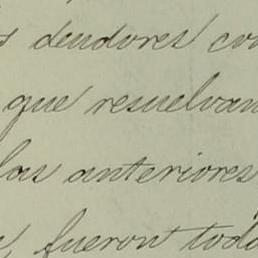 s deudores con
que resuelvan
las anteriores
fueron todo